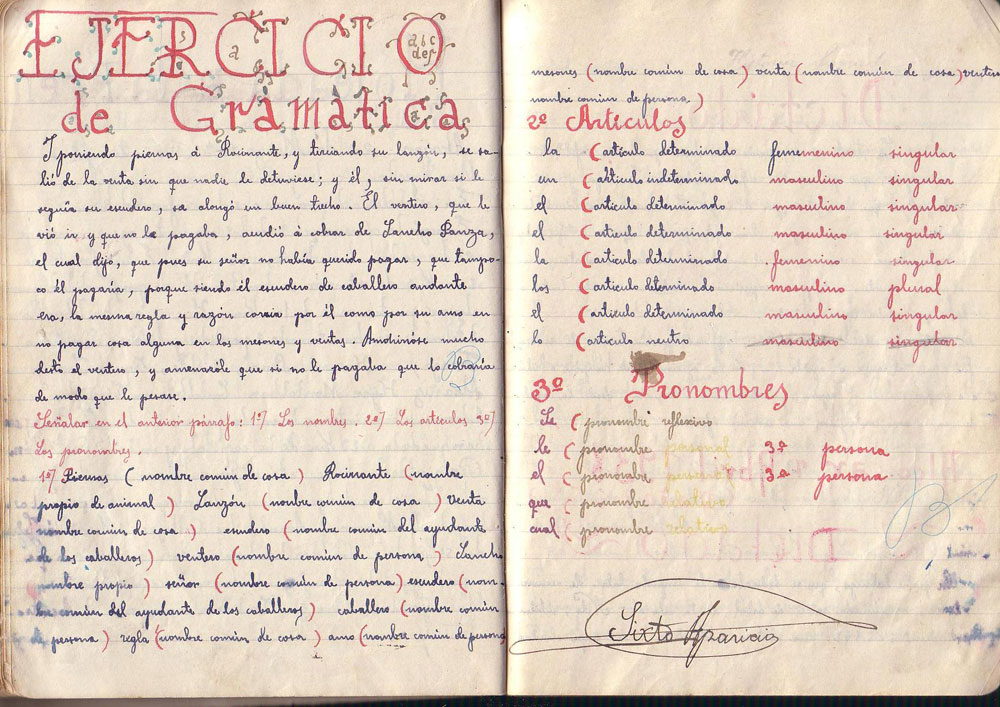 EJERCICIO
de Gramática
Y poniendo piernas á Rocinante, y terciando su lanzón, se sa-
lió de la venta sin que nadie le detuviese; y él, sin mirar si le
seguía su escudero, se alongó un buen trecho. El ventero, que le
vió ir y que no le pagaba, acudió á cobrar de Sancho Panza,
el cual dijo, que pues su señor no había querido pagar, que tampo-
co él pagaría, porque siendo él escudero de caballero andante
era, la mesma regla y razón corría por él como por su amo en
no pagar cosa alguna en los mesones y ventas. Amohinóse mucho
desto el ventero, y amenazóle que si no le pagaba que lo cobraría
de modo que le pesase.
Señalar en el anterior párrafo: 1º/ Los nombres. 2º/ Los artículos 3º/
Los pronombres.
1º/ Piernas ( nombre común de cosa ) Rocinante ( nombre
propio de animal ) Lanzón ( nombre común de cosa ) Venta
nombre común de cosa ) escudero ( nombre común del ayudante
de los caballeros ) ventero ( nombre común de persona ) Sancho
nombre propio ) señor ( nombre común de persona ) escudero ( nom-
bre común del ayudante de los caballeros ) caballero ( nombre común
de persona ) regla ( nombre común de cosa ) amo ( nombre común de persona
mesones ( nombre común de cosa ) venta ( nombre común de cosa ) ventero
nombre común de persona )
2º Artículos
la ( artículo determinado femenenino singular
un ( artículo indeterminado masculino singular
el ( artículo determinado masculino singular
el ( artículo determinado masculino singular
la ( artículo determinado femenino singular
los ( artículo determinado masculino plural
el ( artículo determinado masculino singular
lo ( artículo neutro masculino singular
3º Pronombres
Se ( pronombre reflexivo
le ( pronombre personal 3ª persona
el ( pronombre personal 3ª persona
que ( pronombre relativo
cual ( pronombre relativo
Sixto Aparicio